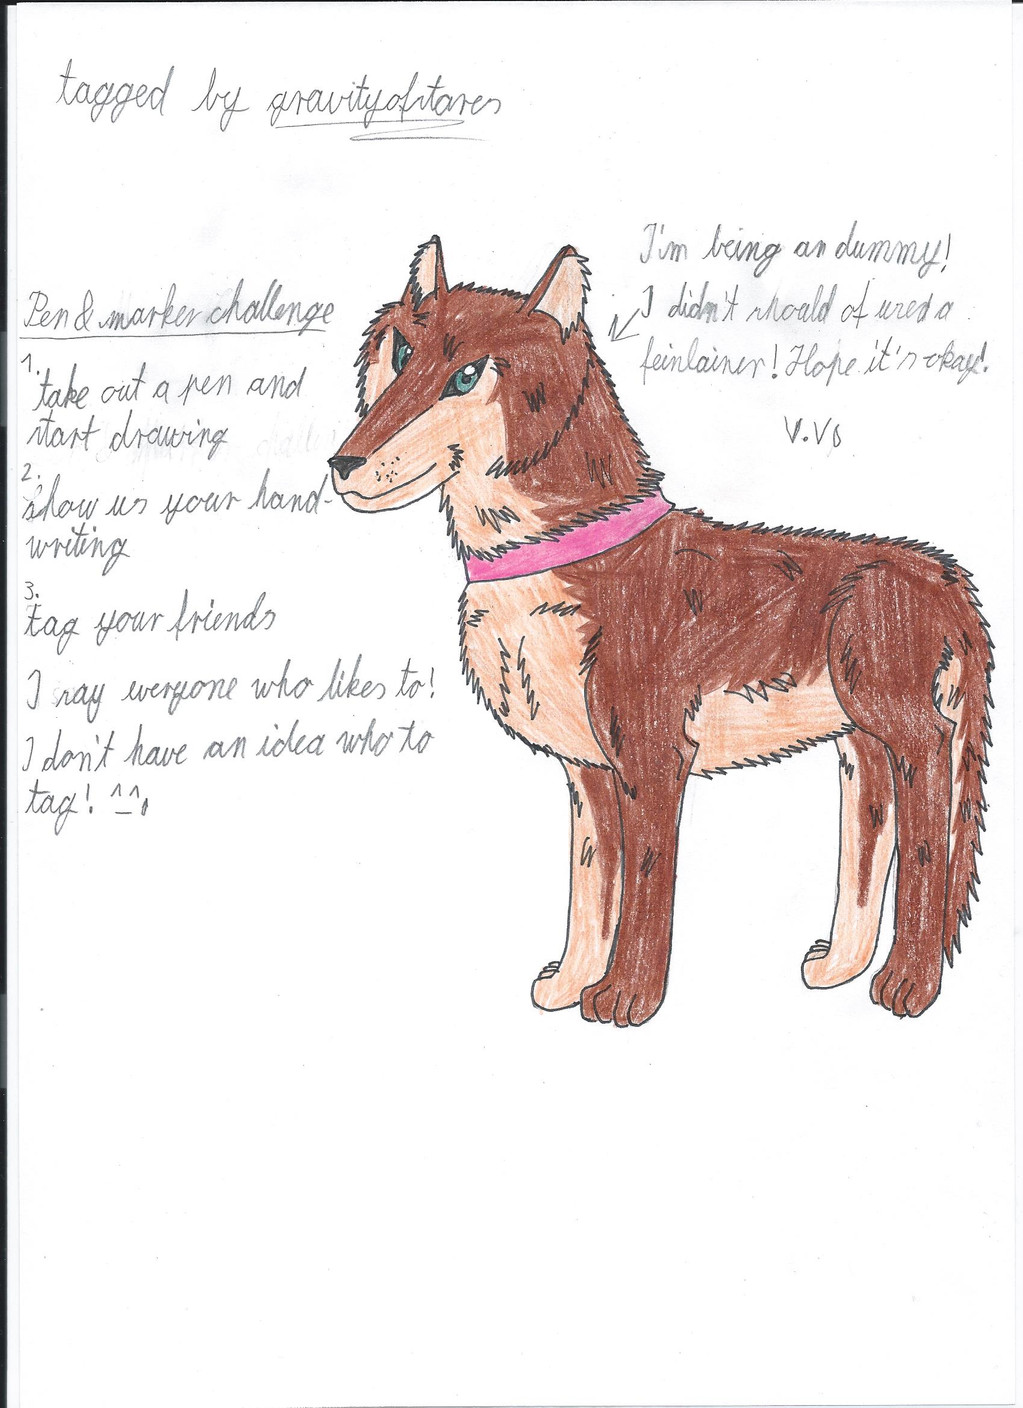 tagged by gravityofstares
Pen & marker challenge
1.
take out a pen and
start drawing
2.
show us your hand-
writing
3.
tag your friends
I say everyone who likes to!
I don't have an idea who to
tag! ^_^;
I'm being an dummy!
I didn't should of used a
feinlainer! Hope it's okay!
V.V;